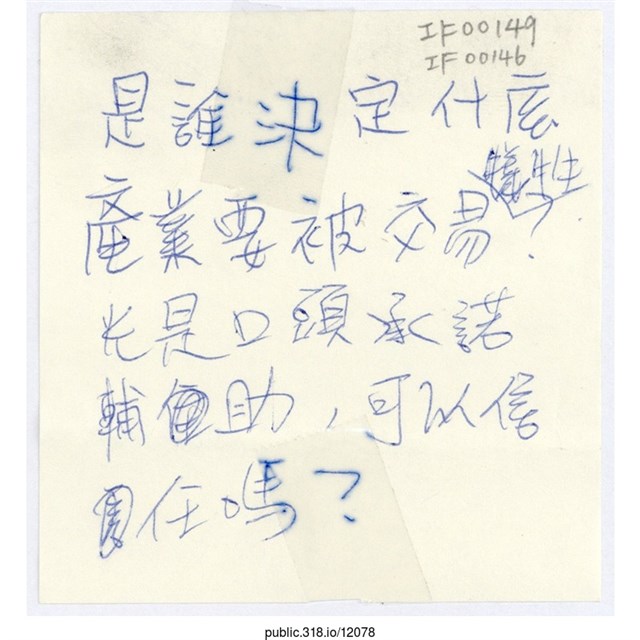 IF00149
IF00146
是誰決定什麼
犧牲
產業要被交易?
光是口頭承諾
輔助,可以信
任嗎?
public.318.io/12078